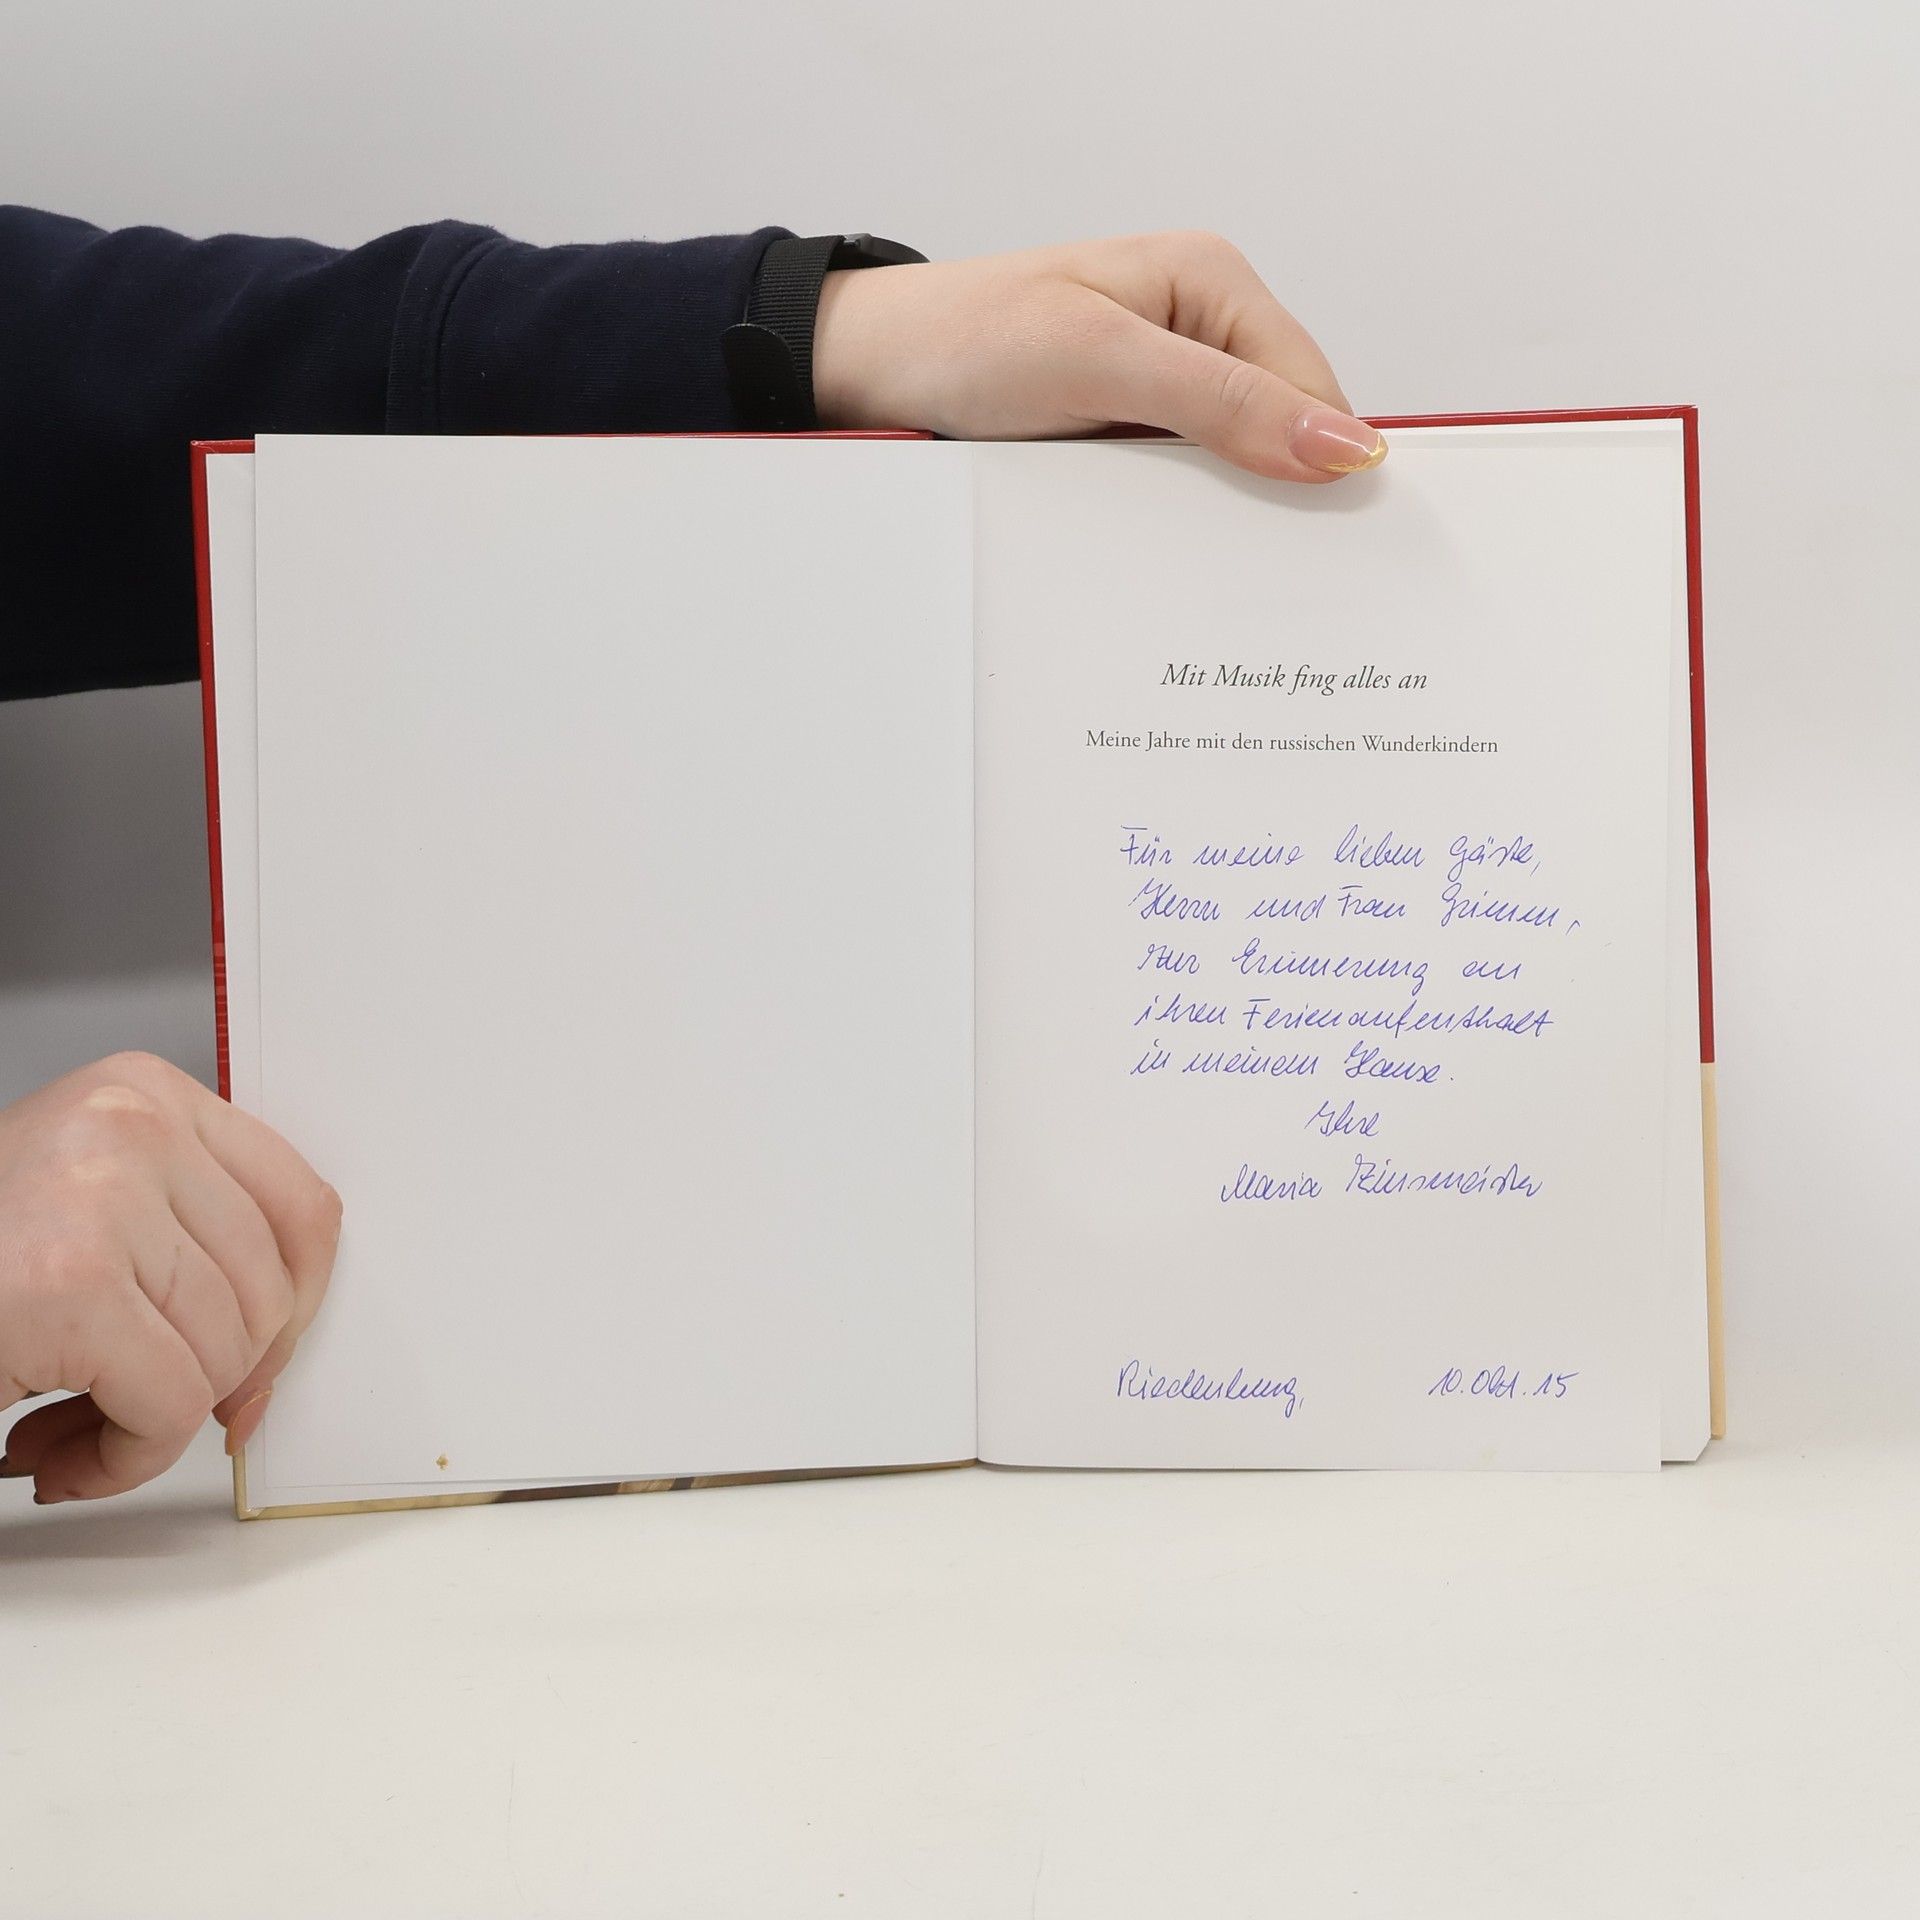 Mit Musik fing alles an
Meine Jahre mit den russischen Wunderkindern
Für meine lieben Gäste,
Herrn und Frau Grimm,
zur Erinnerung an
ihren Ferienaufenthalt
in meinem Hause.
Ihre
Maria Zinsmeister
Riedenburg, 10. Okt. 15